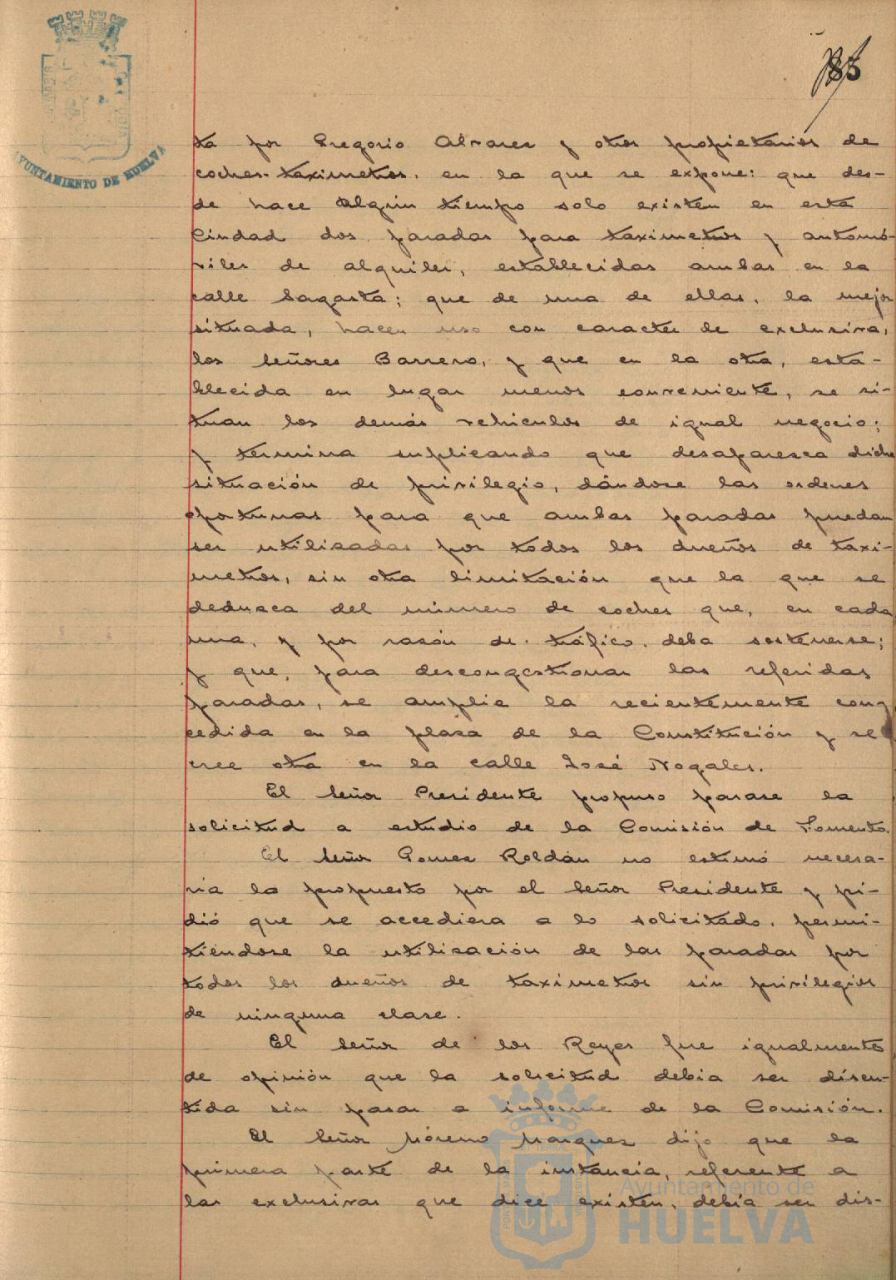 85
AYUNTAMIENTO DE HUELVA
ta por Gregorio Alvarez y otros propietarios de
coches-taximetros, en la que se expone: que des-
de hace algún tiempo solo existen en esta
Ciudad dos paradas para taximetros y automó-
viles de alquiler, establecidas ambas en la
calle Sagasta; que de una de ellas, la mejor
situada, hacen uso con caracter de exclusiva,
los Señores Barrero, y que en la otra, esta-
blecida en lugar menos conveniente, se si-
tuan los demás vehiculos de igual negocio;
y termina suplicando que desaparezca dicha
situación de privilegio, dándose las ordenes
oportunas para que ambas paradas puedan
ser utilizadas por todos los dueños de taxi-
metros, sin otra limitación que la que se
deduzca del número de coches que, en cada
una, y por razón de tráfico, deba sostenerse;
y que, para descongestionar las referidas
paradas, se amplie la recientemente con-
cedida en la plaza de la Constitución y se
cree otra en la calle José Nogales.
El Señor Presidente propuso pasase la
solicitud a estudio de la Comisión de Fomento.
El Señor Gomez Roldán no estimó necesa-
ria lo propuesto por el Señor Presidente y pi-
dió que se accediera a lo solicitado, permi-
tiéndose la utilización de las paradas por
todos los dueños de taximetros sin privilegios
de ninguna clase.
El Señor de los Reyes fue igualmente
de opinión que la solicitud debia ser discu-
tida sin pasar a informe de la Comisión.
El Señor Moreno Marquez dijo que la
primera parte de la instancia, referente a
las exclusivas que dice existen, debía ser dis-
Ayuntamiento de
HUELVA